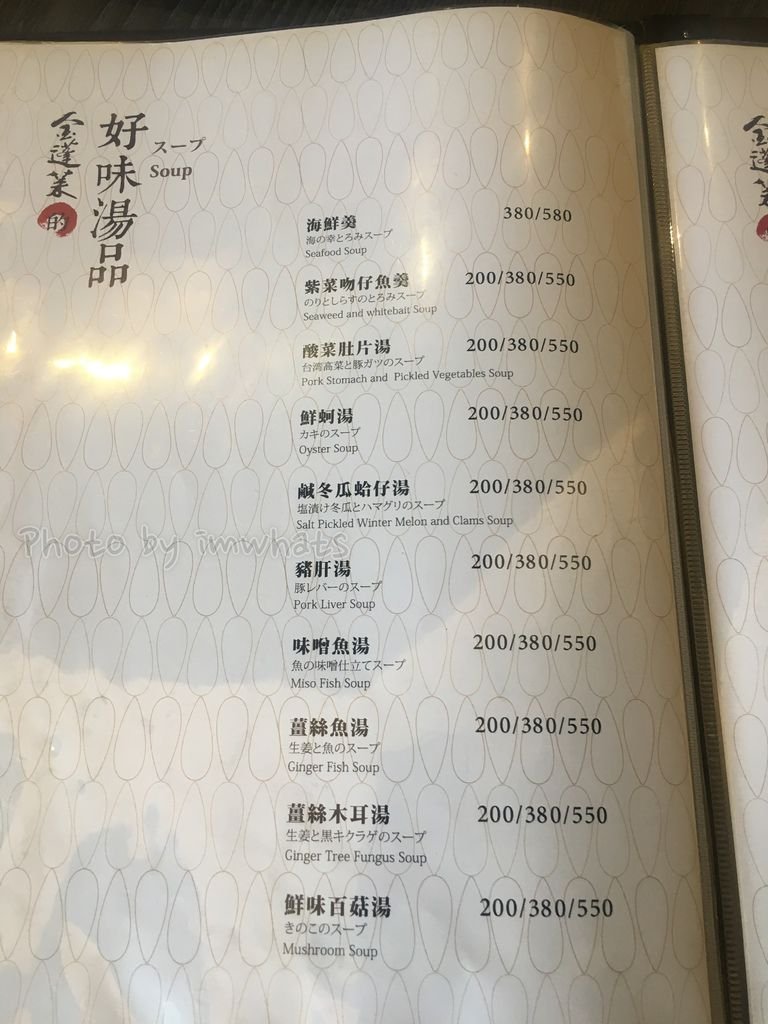 金蓬萊的
好味湯品
スープ
Soup
海鮮羹 380/580
海の幸とろみスープ
Seafood Soup
紫菜吻仔魚羹 200/380/550
のりとしらすのとろみスープ
Seaweed and whitebait Soup
酸菜肚片湯 200/380/550
台湾高菜と豚ガツのスープ
Pork Stomach and Pickled Vegetables Soup
鮮蚵湯 200/380/550
カキのスープ
Oyster Soup
鹹冬瓜蛤仔湯 200/380/550
塩漬け冬瓜とハマグリのスープ
Salt Pickled Winter Melon and Clams Soup
豬肝湯 200/380/550
豚レバーのスープ
Pork Liver Soup
味噌魚湯 200/380/550
魚の味噌仕立てスープ
Miso Fish Soup
薑絲魚湯 200/380/550
生姜と魚のスープ
Ginger Fish Soup
薑絲木耳湯 200/380/550
生姜と黒キクラゲのスープ
Ginger Tree Fungus Soup
鮮味百菇湯 200/380/550
きのこのスープ
Mushroom Soup
Photo by imwhats
金蓬